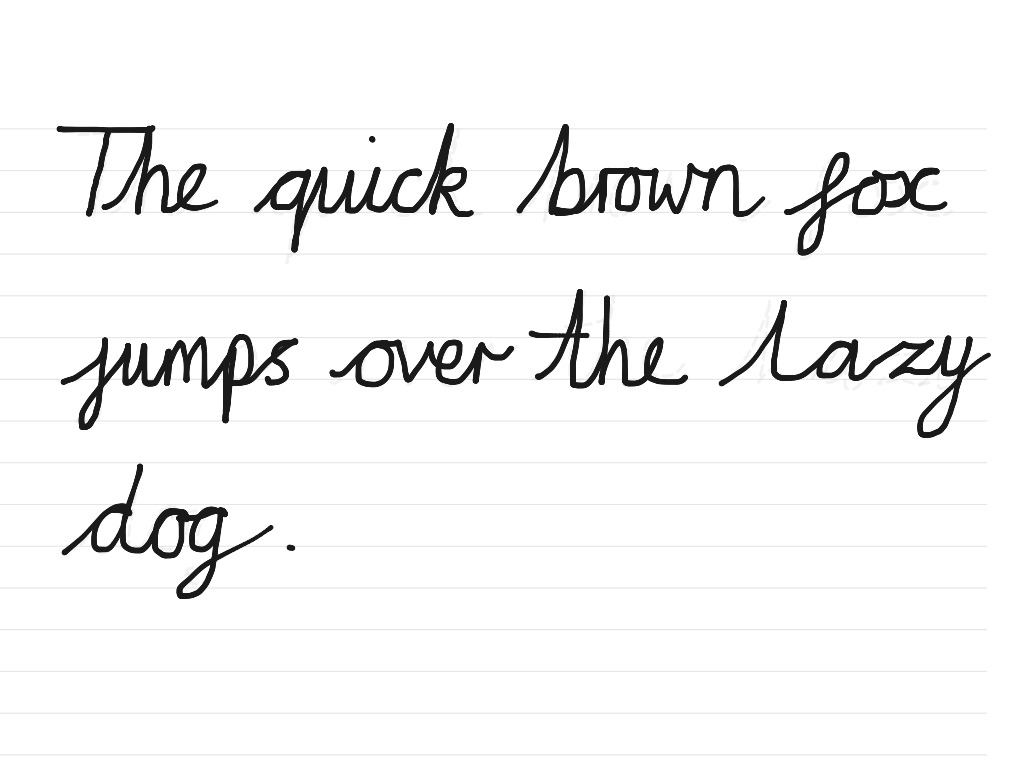 The quick brown fox
jumps over the lazy
dog.